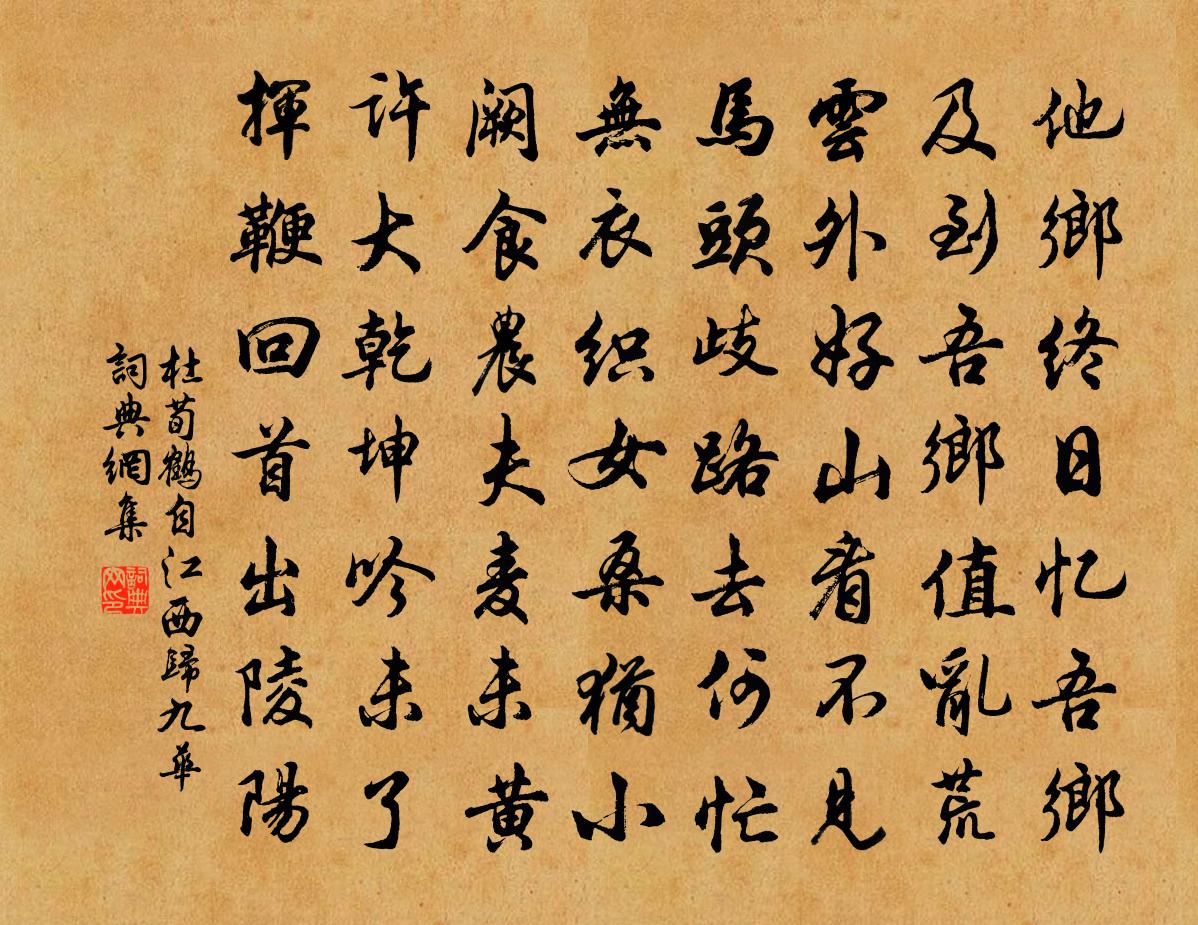 他鄉終日忆吾鄉
及到吾鄉值亂荒
雲外好山看不見
馬頭歧路去何忙
無衣织女桑猶小
阙食農夫麦未黄
许大乾坤吟未了
揮鞭回首出陵陽
杜荀鶴自江西歸九華
詞典網集
詞典網印